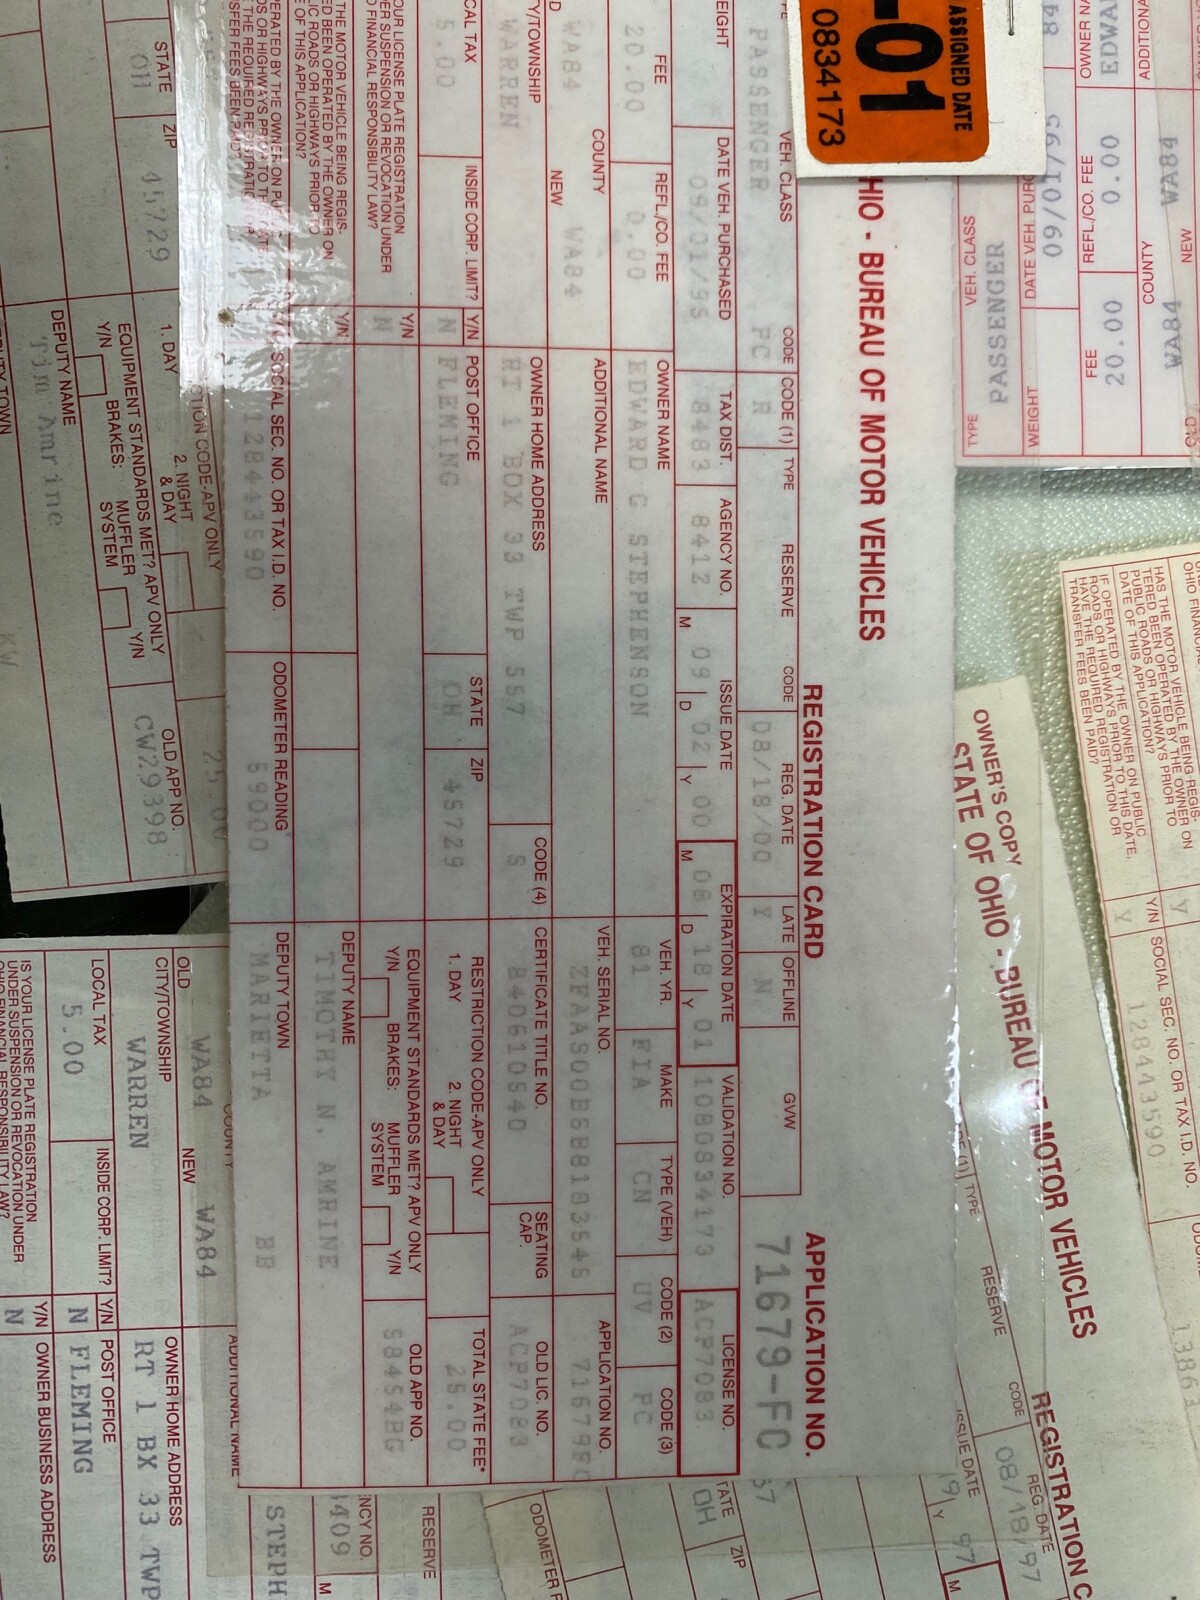 HIO - BUREAU OF MOTOR VEHICLES
REGISTRATION CARD
APPLICATION NO.
71679-FC
VEH. CLASS CODE CODE (1) TYPE RESERVE CODE REG. DATE LATE OFFLINE GVW
PASSENGER PC R 08/18/00 Y N
DATE VEH. PURCHASED TAX DIST. AGENCY NO. ISSUE DATE EXPIRATION DATE VALIDATION NO. LICENSE NO.
09/01/95 8483 8412 M 09 D 02 Y 00 M 08 D 18 Y 01 1080834173 ACP7083
FEE REFL./CO. FEE OWNER NAME VEH. YR. MAKE TYPE (VEH) CODE (2) CODE (3)
20.00 0.00 EDWARD G STEPHENSON 81 FIA CN UV PC
COUNTY ADDITIONAL NAME VEH. SERIAL NO. APPLICATION NO.
WA84 NEW WA84 71679FC
Y/TOWNSHIP OWNER HOME ADDRESS CODE (4) CERTIFICATE TITLE NO. SEATING CAP. OLD LIC. NO.
WARREN RT 1 BOX 33 TWP 557 S 840610540 ACP7083
CAL TAX INSIDE CORP. LIMIT? Y/N POST OFFICE STATE ZIP RESTRICTION CODE-APV ONLY TOTAL STATE FEE*
5.00 N FLEMING OH 45729 1. DAY 2. NIGHT & DAY 25.00
OUR LICENSE PLATE REGISTRATION Y/N
ER SUSPENSION OR REVOCATION UNDER N
FINANCIAL RESPONSIBILITY LAW?
EQUIPMENT STANDARDS MET? APV ONLY OLD APP NO.
Y/N BRAKES: MUFFLER SYSTEM Y/N 58454BG
THE MOTOR VEHICLE BEING REGIS- Y/N
ED BEEN OPERATED BY THE OWNER ON
IC ROADS OR HIGHWAYS PRIOR TO
E OF THIS APPLICATION?
DEPUTY NAME
TIMOTHY N. AMRINE
SOCIAL SEC. NO. OR TAX I.D. NO. ODOMETER READING DEPUTY TOWN
128443590 59000 MARIETTA BB
ASSIGNED DATE
-01
0834173
84
OWNER NA
EDWA
ADDITIONA
09/01/95
DATE VEH. PURC
WEIGHT
REFL./CO. FEE
0.00
FEE
20.00
COUNTY
NEW
WA84
WA84
VEH. CLASS
PASSENGER
TYPE
HAS THE MOTOR VEHICLE BEING REGIS-
TERED BEEN OPERATED BY THE OWNER ON
PUBLIC ROADS OR HIGHWAYS PRIOR TO
DATE OF THIS APPLICATION?
IF OPERATED BY THE OWNER ON PUBLIC
ROADS OR HIGHWAYS PRIOR TO THIS DATE,
HAVE THE REQUIRED REGISTRATION OR
TRANSFER FEES BEEN PAID?
Y
Y/N SOCIAL SEC. NO. OR TAX I.D. NO.
Y 128443590
OWNER'S COPY
STATE OF OHIO - BUREAU OF MOTOR VEHICLES
REGISTRATION C
TYPE RESERVE CODE REG. DATE
08/18/97
ISSUE DATE
19 Y 97 M
STATE ZIP
OH 45729
1. DAY 2. NIGHT & DAY
TION CODE-APV ONLY
25.00
EQUIPMENT STANDARDS MET? APV ONLY OLD APP NO.
Y/N BRAKES: MUFFLER SYSTEM Y/N CW29398
DEPUTY NAME
Tim Amrine
PUTY TOWN
KW
OLD WA84 NEW WA84
COUNTY
ADDITIONAL NAME
CITY/TOWNSHIP OWNER HOME ADDRESS
WARREN RT 1 BX 33 TWP
LOCAL TAX INSIDE CORP. LIMIT? Y/N POST OFFICE
5.00 N FLEMING
IS YOUR LICENSE PLATE REGISTRATION Y/N OWNER BUSINESS ADDRESS
UNDER SUSPENSION OR REVOCATION UNDER N
STEPH
NCY NO.
1409
M
RESERVE
ODOMETER
TATE ZIP
OH